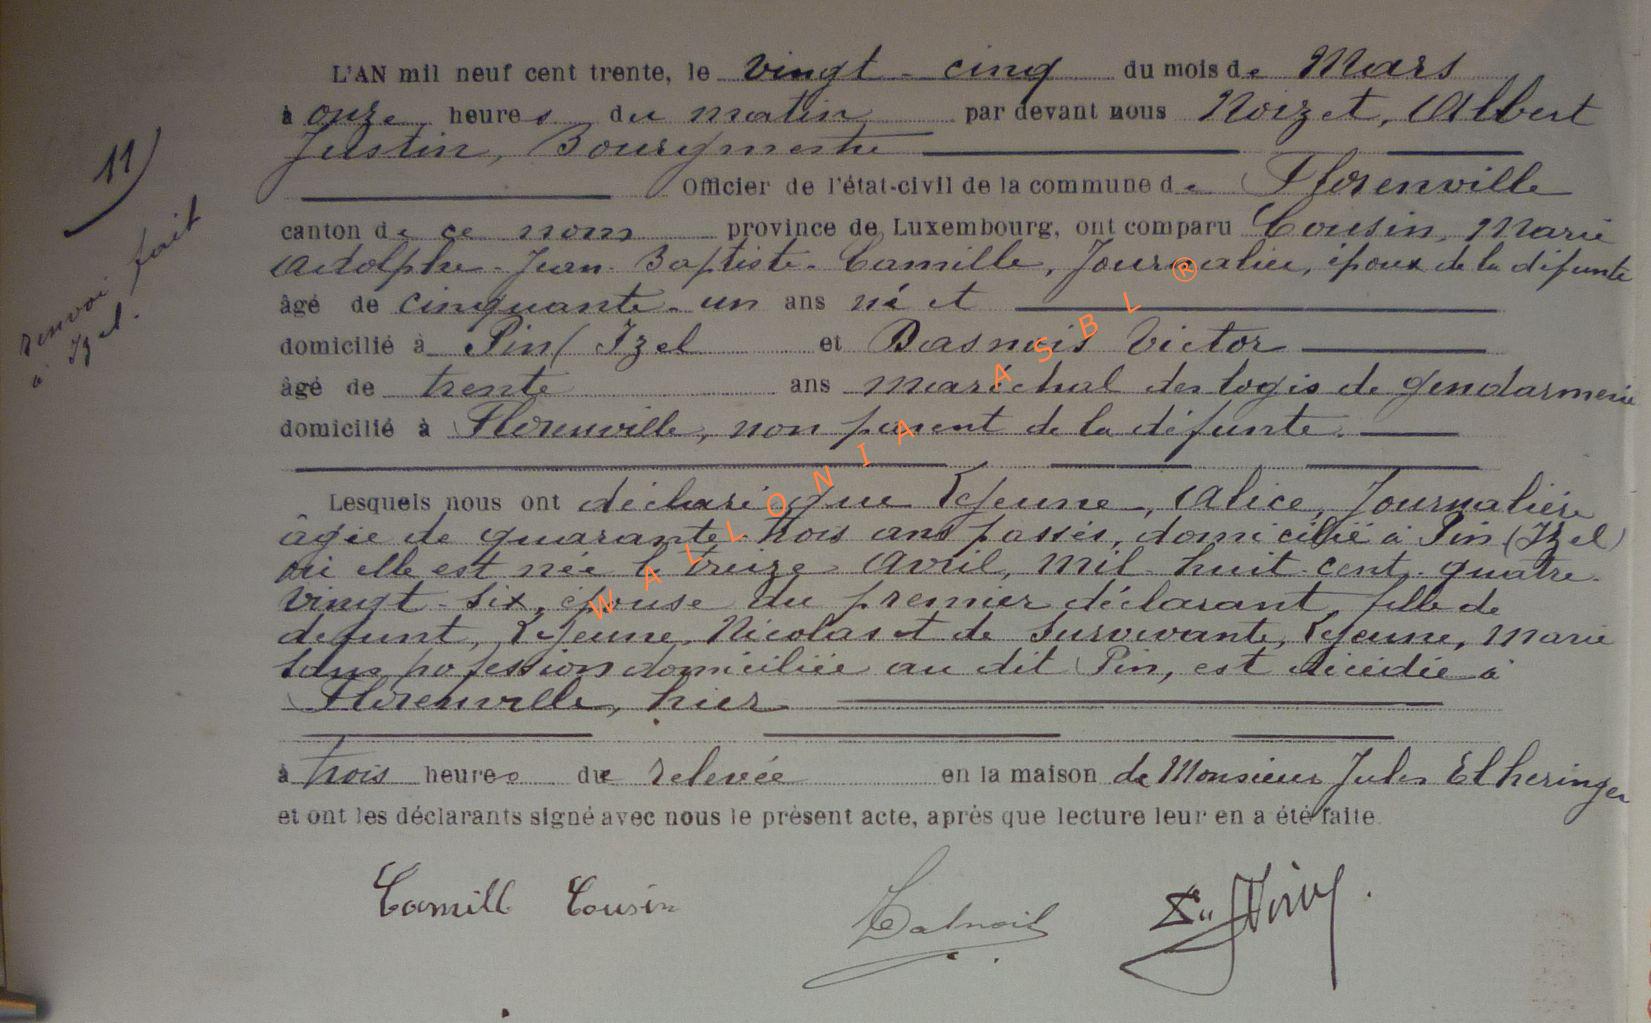 11)
renvoi fait
à Izel.
L'AN mil neuf cent trente, le vingt-cinq du mois de Mars
à onze heures du matin par devant nous Noizet, Albert
Justin, Bourgmestre
Officier de l'état-civil de la commune de Florenville
canton de ce nom province de Luxembourg, ont comparu Cousin, Marie
Adolphe-Jean-Baptiste-Camille, Journalier, époux de la défunte
âgé de cinquante-un ans né et
domicilié à Pin (Izel et Basnois Victor
âgé de trente ans maréchal des logis de gendarmerie
domicilié à Florenville, non parent de la défunte.
Lesquels nous ont déclaré que Lejeune, Alice, Journalière
âgée de quarante-trois ans passés, domiciliée à Pin (Izel)
où elle est née le treize Avril, mil-huit-cent-quatre-
vingt-six, épouse du premier déclarant, fille de
défunt, Lejeune, Nicolas et de survivante, Lejeune, Marie
sans profession domiciliée au dit Pin, est décédée à
Florenville, hier
à trois heures du relevée en la maison de Monsieur Jules Etheringer
et ont les déclarants signé avec nous le présent acte, après que lecture leur en a été faite.
Camill Cousin
WALLONIA ASBL ®